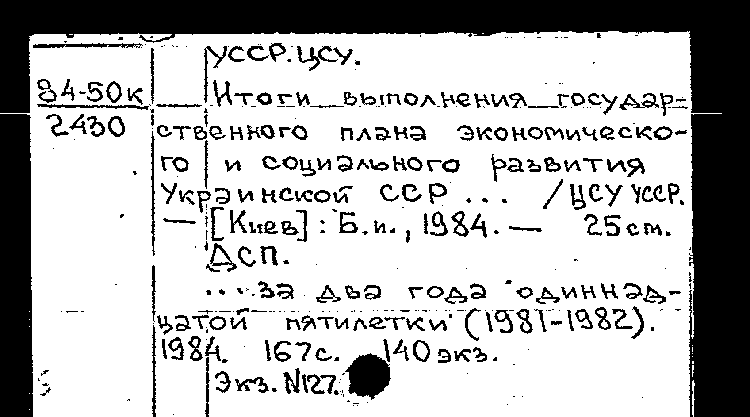 УССР. ЦСУ.
84-50к Итоги выполнения государ-
2430 ственного плана экономическо-
го и социального развития
Украинской ССР ... /ЦСУ УССР.
— [Киев] : Б.и., 1984. — 25 см.
ДСП.
... за два года одиннад-
цатой пятилетки (1981-1982).
1984. 167с. 140 экз.
Экз. N127.